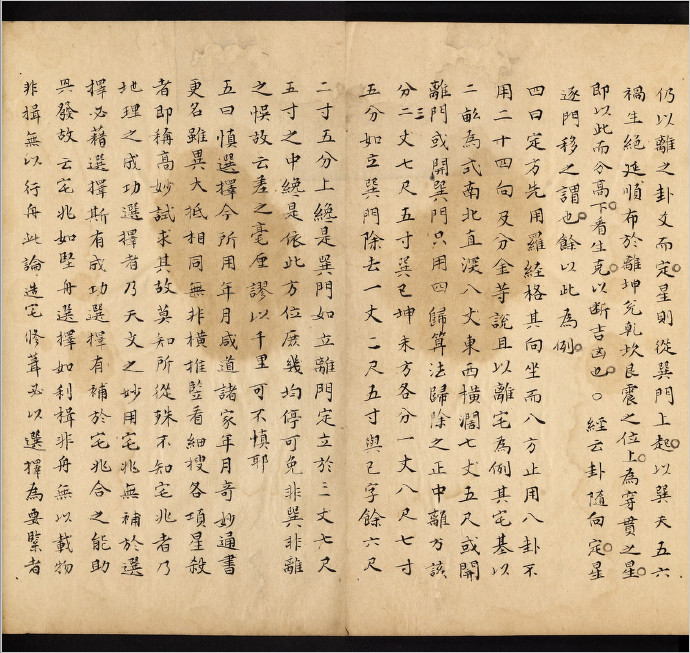 仍以離之卦爻而定星則從巽門上起以巽天五六
禍生絕延順布於離坤兌乾坎艮震之位上為穿貫之星
即以此而分高下看生克以断吉凶也○經云卦隨向定星
逐門移之謂也餘以此為例
四曰定方先用羅經格其向坐而八方止用八卦不
用二十四向及分金等說且以離宅為例其宅基以
二畝為式南北直深八丈東西横濶七丈五尺或開
離門或開巽門只用四歸算法歸除之正中離方該
分二丈七尺五寸巽巳坤未方各分一丈八尺七寸
五分如立巽門除去一丈二尺五寸與巳字餘六尺
二寸五分上總是巽門如立離門定立於三丈七尺
五寸之中總是依此方位庶幾均停可免非巽非離
之悞故云差之毫厘謬以千里可不慎耶
五曰慎選擇今所用年月咸道諸家年月奇妙通書
更名雖異大抵相同無非横推竪看細搜各項星殺
者即稱高妙試求其故莫知所從殊不知宅兆者乃
地理之成功選擇者乃天文之妙用宅兆無補於選
擇必藉選擇斯有成功選擇有補於宅兆合之能助
興發故云宅兆如堅舟選擇如利楫非舟無以載物
非楫無以行舟此論造宅修葺必以選擇為要緊者